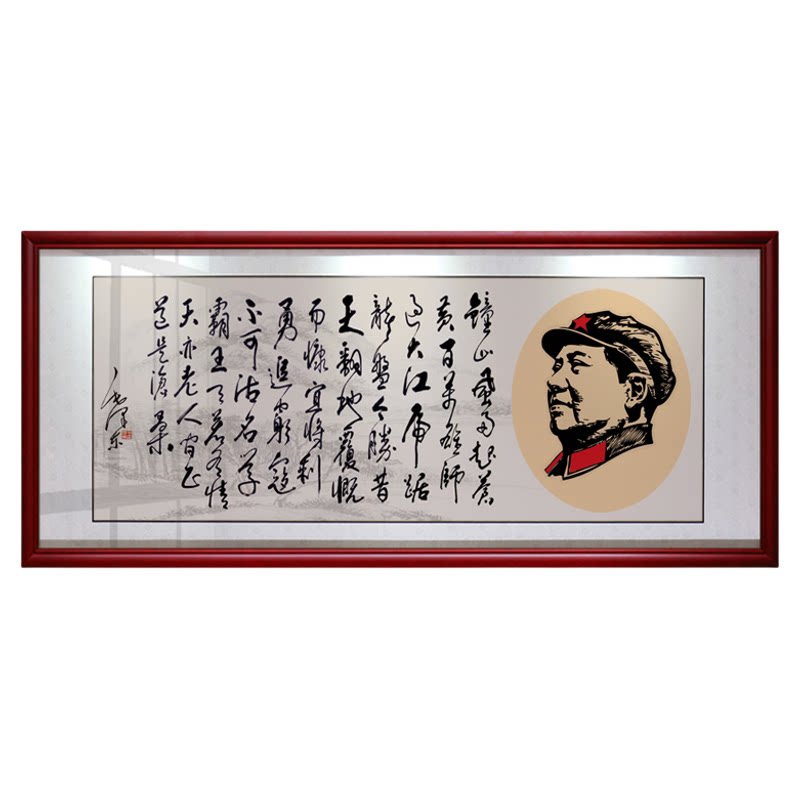 鐘山風雨起蒼
黃百萬雄師
过大江虎踞
龍盤今勝昔
天翻地覆慨
而慷宜将剩
勇追窮寇
不可沽名学
霸王天若有情
天亦老人间正
道是滄桑
毛泽东